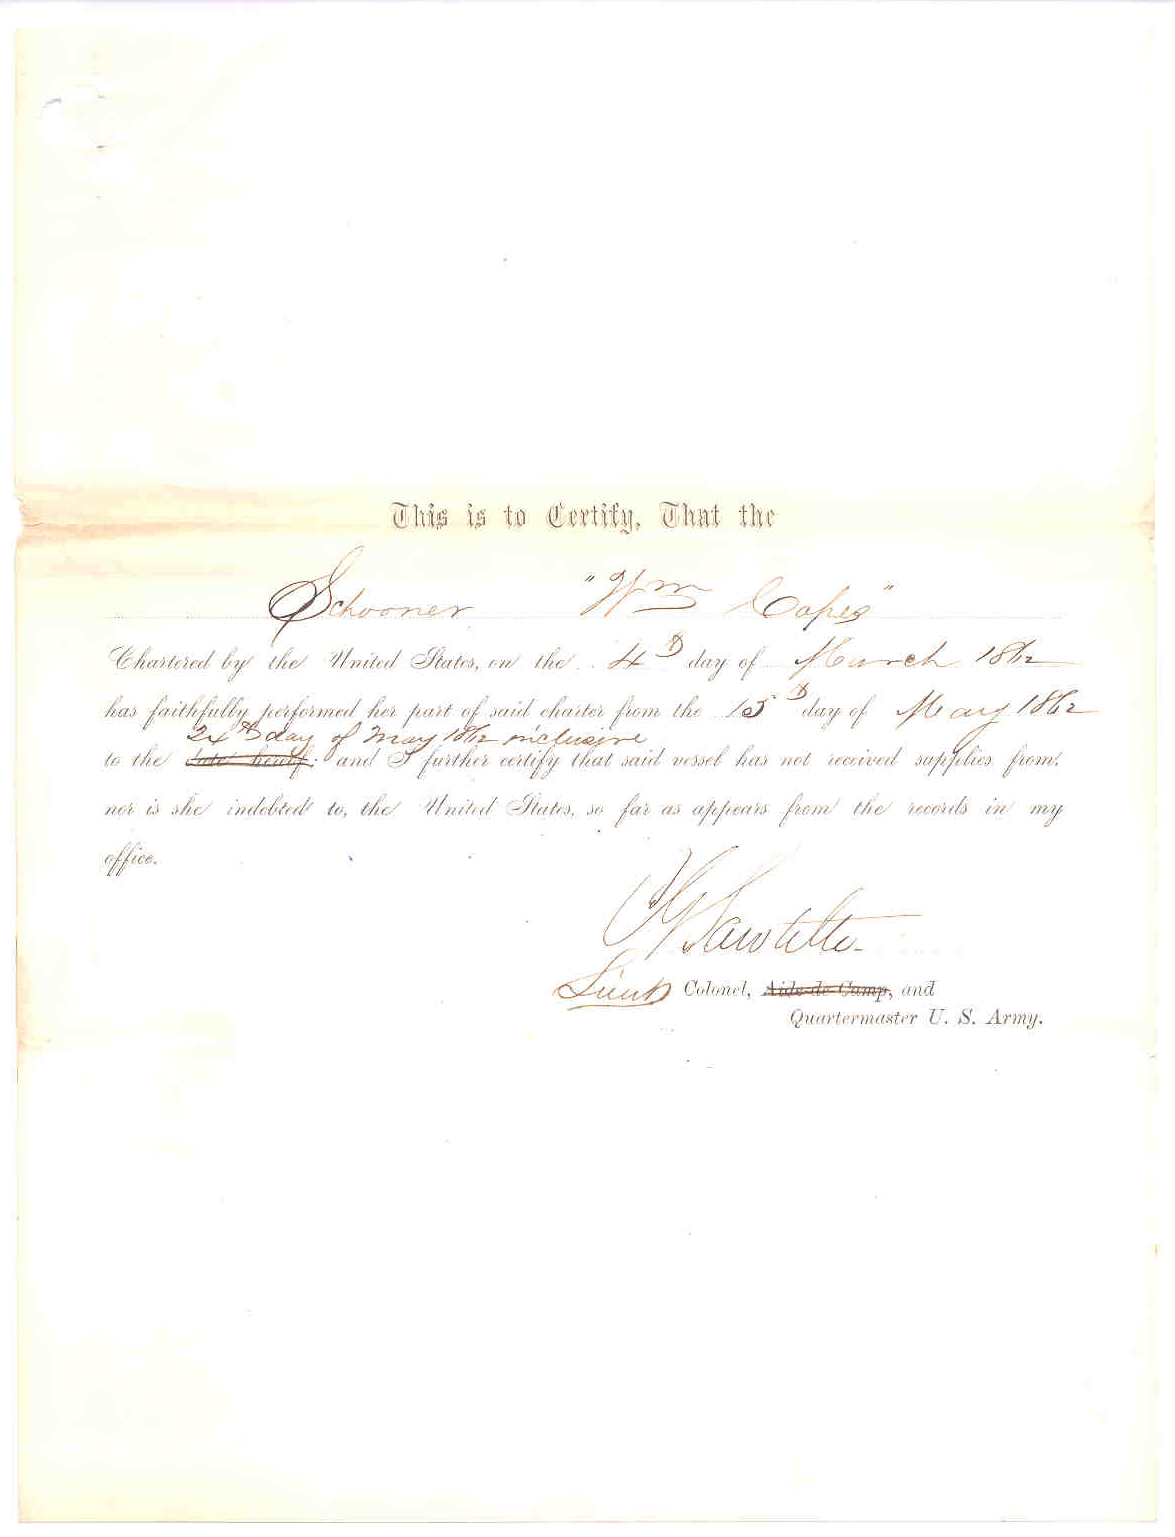 This is to Certify, That the
Schooner "Wm Capes"
Chartered by the United States, on the 4th day of March 1862
has faithfully performed her part of said charter from the 15th day of May 1862
24th day of May 1862 inclusive
to the date hereof; and I further certify that said vessel has not received supplies from,
nor is she indebted to, the United States, so far as appears from the records in my
office.
CG Sawtelle
Lieut Colonel, Aide-de-Camp, and
Quartermaster U. S. Army.